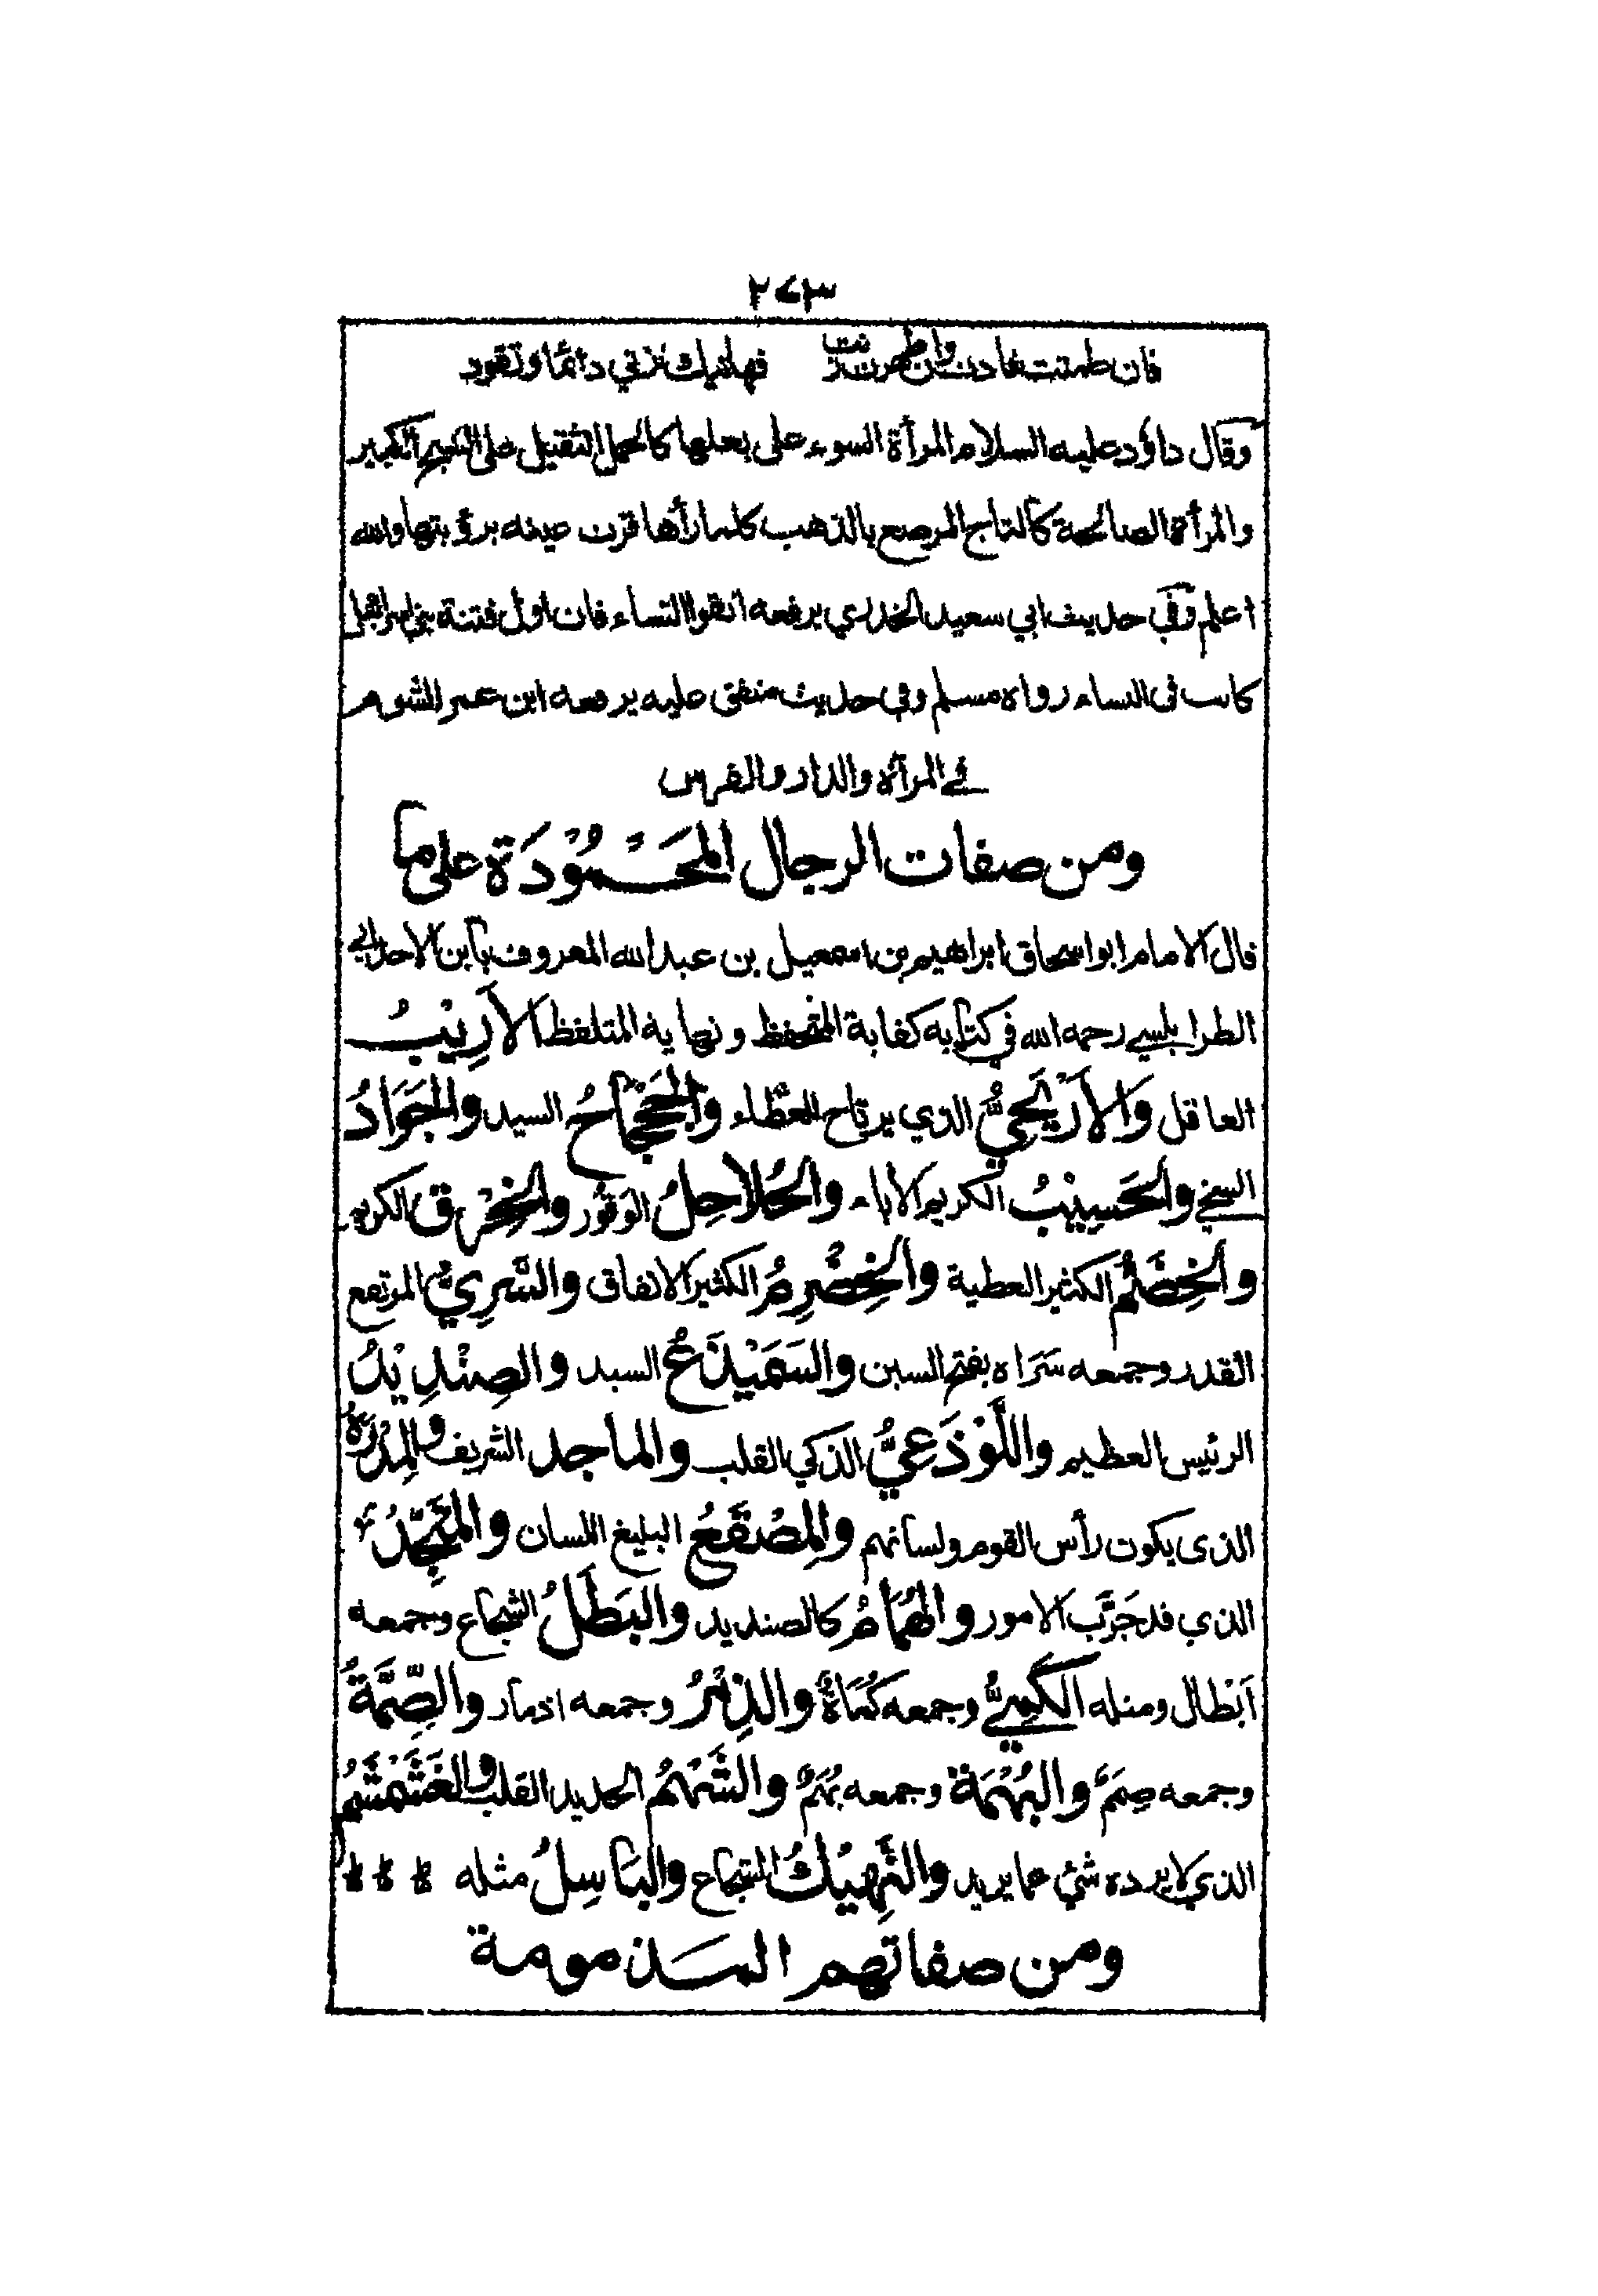 ٢٧٣
فان طمثت قادت وان طهرت زنت فهاتيك تزني دائما وتقود
وقال داؤد عليه السلام المرأة السوء على بعلها كالحمل الثقيل على الشيخ الكبير
والمرأة الصالحة كالتاج المرصع بالذهب كلما رأها قرت عينه برؤيتها والله
اعلم وفي حديث ابي سعيد الخدري يرفعه اتقوا النساء فان اول فتنة بني اسرائيل
كانت في النساء رواه مسلم وفي حديث متفق عليه يرفعه ابن عمر الشوم
في المرأة والدار والفرس
ومن صفات الرجال المَحْمُوْدَة على ما
قال الامام ابو اسحاق ابراهيم بن اسمعيل بن عبدالله المعروف بابن الاجدابي
الطرابلسي رحمه الله في كتابه كفاية المتحفظ ونهاية المتلفظ الأرِيْبُ
العاقل وَالأرْيَحِيُّ الذي يرتاح للعطاء وَالجَحْجَاحُ السيد والجَوَادُ
السخي والحَسِيْبُ الكريم الأباء والحُلاحِلُ الوَقُور والخِرْق الكريم
والخِضَمُّ الكثير العطية والخِضْرِمُ الكثير الانفاق والسَّرِيُّ المرتفع
القدر وجمعه سَرَاه بفتح السين والسَمَيْدَعُ السيد والصِنْدِيْدُ
الرئيس العظيم واللَّوْذَعِيُّ الذكي القلب والماجد الشريف والمِدْرَهُ
الذى يكون رأس القوم ولسانهم والمِصْقَعُ البليغ اللسان والمُنَجَّدُ
الذي قد جَرَّب الامور والهُمَامُ كالصنديد والبَطَلُ الشجاع وجمعه
اَبْطال ومثله الكَمِيُّ وجمعه كُمَاةٌ والذِمْرُ وجمعه اذمار والصِّمَّةُ
وجمعه صِمَمٌ والبُهْمَة وجمعه بُهَمٌ والشَّهْمُ الحديد القلب والغَشَمْشَمُ
الذي لا يرده شئ عما يريد والنَّهِيْكُ الشجاع والبَاسِلُ مثله
ومن صفاتهم المذمومة